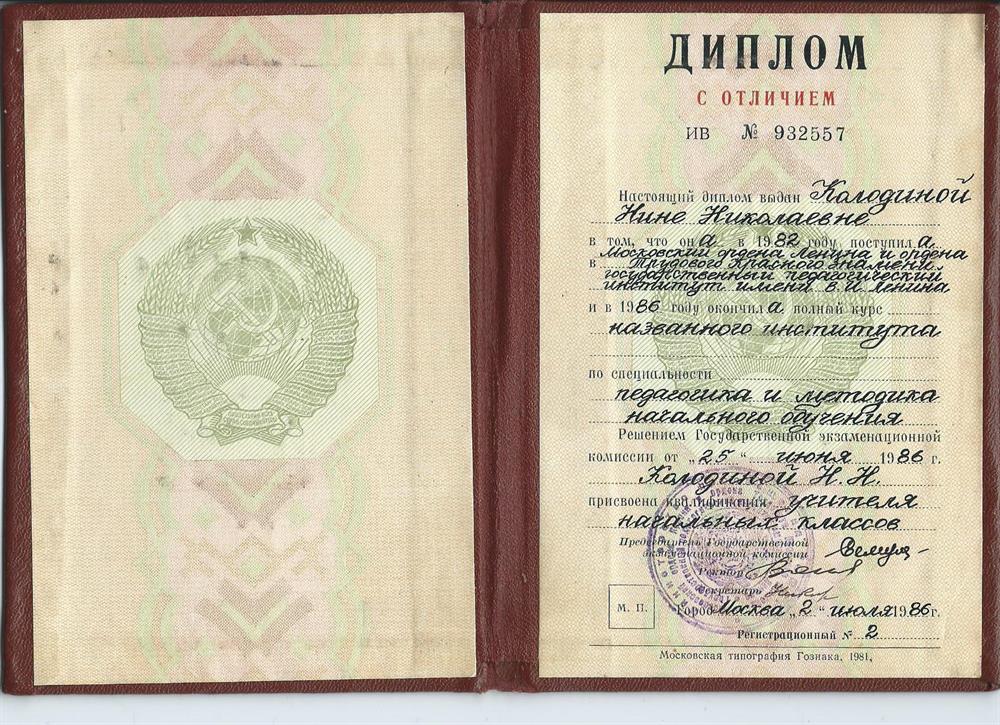 ДИПЛОМ
С ОТЛИЧИЕМ
ИВ № 932557
Настоящий диплом выдан Колодиной
Нине Николаевне
в том, что она в 1982 году поступила
Московский ордена Ленина и ордена
в Трудового Красного Знамени
государственный педагогический
институт имени В.И. Ленина
и в 1986 году окончила полный курс
названного института
по специальности
педагогика и методика
начального обучения
Решением Государственной экзаменационной
комиссии от „25“ июня 1986 г.
Колодиной Н.Н.
присвоена квалификация учителя
начальных классов
Председатель Государственной
экзаменационной комиссии
Ректор
Секретарь
М. П.
Город Москва „2“ июля 1986 г.
Регистрационный № 2
Московская типография Гознака, 1981,